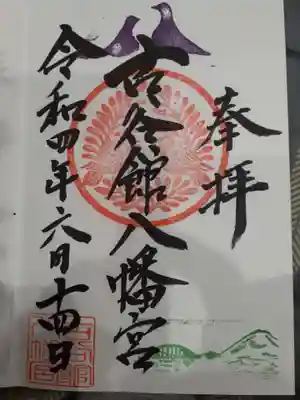 奉拝
古谷館八幡宮
令和四年六月十四日